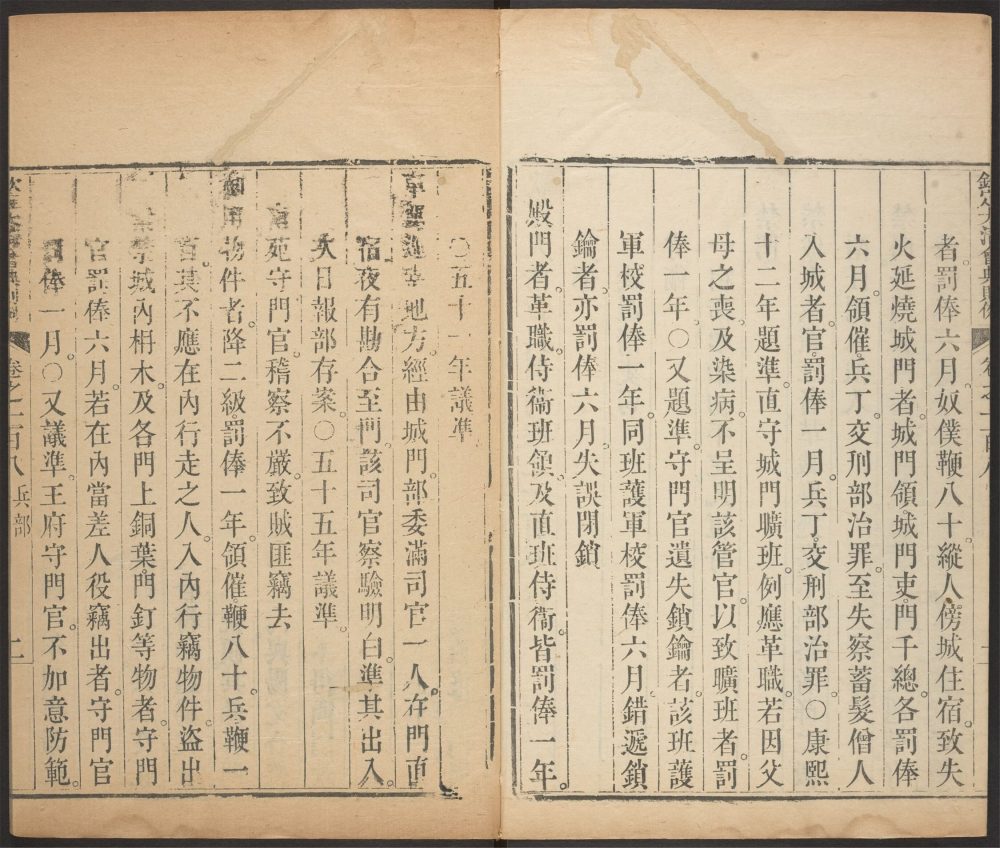 者罰俸六月奴僕鞭八十縱人傍城住宿致失
火延燒城門者城門領城門吏門千總各罰俸
六月領催兵丁交刑部治罪至失察蓄髮僧人
入城者官罰俸一月兵丁交刑部治罪○康熙
十二年題準直守城門曠班例應革職若因父
母之喪及染病不呈明該管官以致曠班者罰
俸一年○又題準守門官遺失鎖鑰者該班護
軍校罰俸一年同班護軍校罰俸六月錯遞鎖
鑰者亦罰俸六月失誤閉鎖
殿門者革職侍衞班領及直班侍衞皆罰俸一年
○五十一年議準
地方經由城門部委滿司官一人在門直
宿夜有勘合至門該司官察驗明白準其出入
次日報部存案○五十五年議準
宮苑守門官稽察不嚴致賊匪竊去
御用物件者降二級罰俸一年領催鞭八十兵鞭一
百其不應在內行走之人入內行竊物件盜出
城內柵木及各門上銅葉門釘等物者守門
官罰俸六月若在內當差人役竊出者守門官
罰俸一月○又議準王府守門官不加意防範
卷之一百八 兵部 二